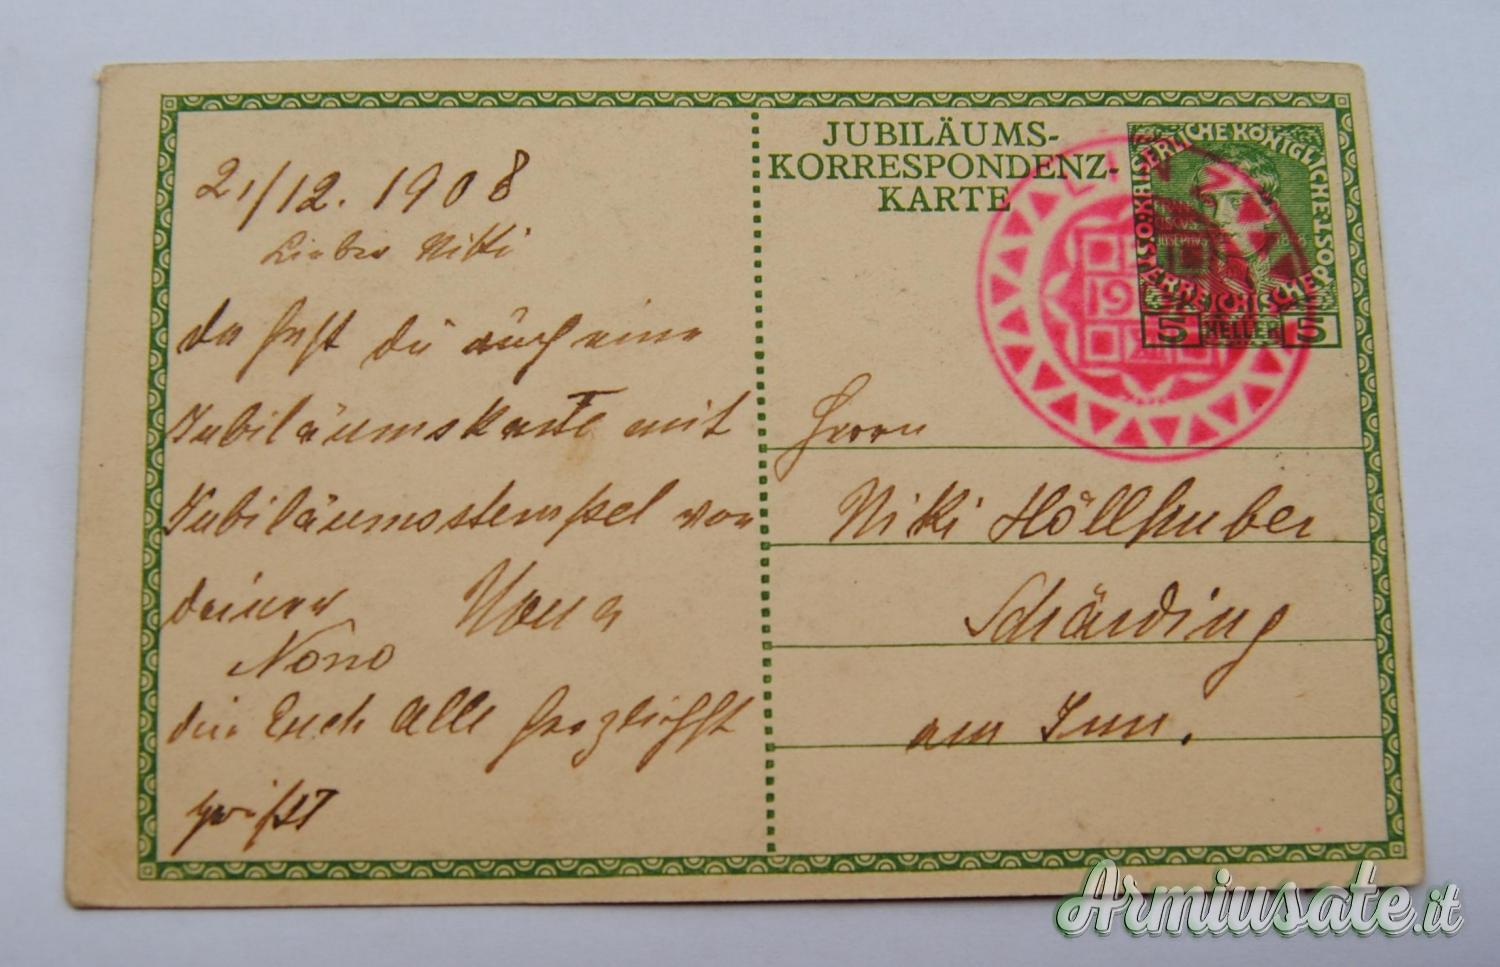 2./12. 1908
Lieber Nikki
da hast du auch eine
Jubiläumskarte mit
Jubiläumsstempel von
deiner Nona
Nono
die Euch Alle herzlichst
grüßt
JUBILÄUMS-
KORRESPONDENZ-
KARTE
LINZ
19
XII
KAISERLICHE KÖNIGLICHE ÖSTERREICHISCHE POST
JOSEPHVS
5 HELLER 5
Herrn
Niki Höllhuber
Schärding
am Inn.
Armiusate.it